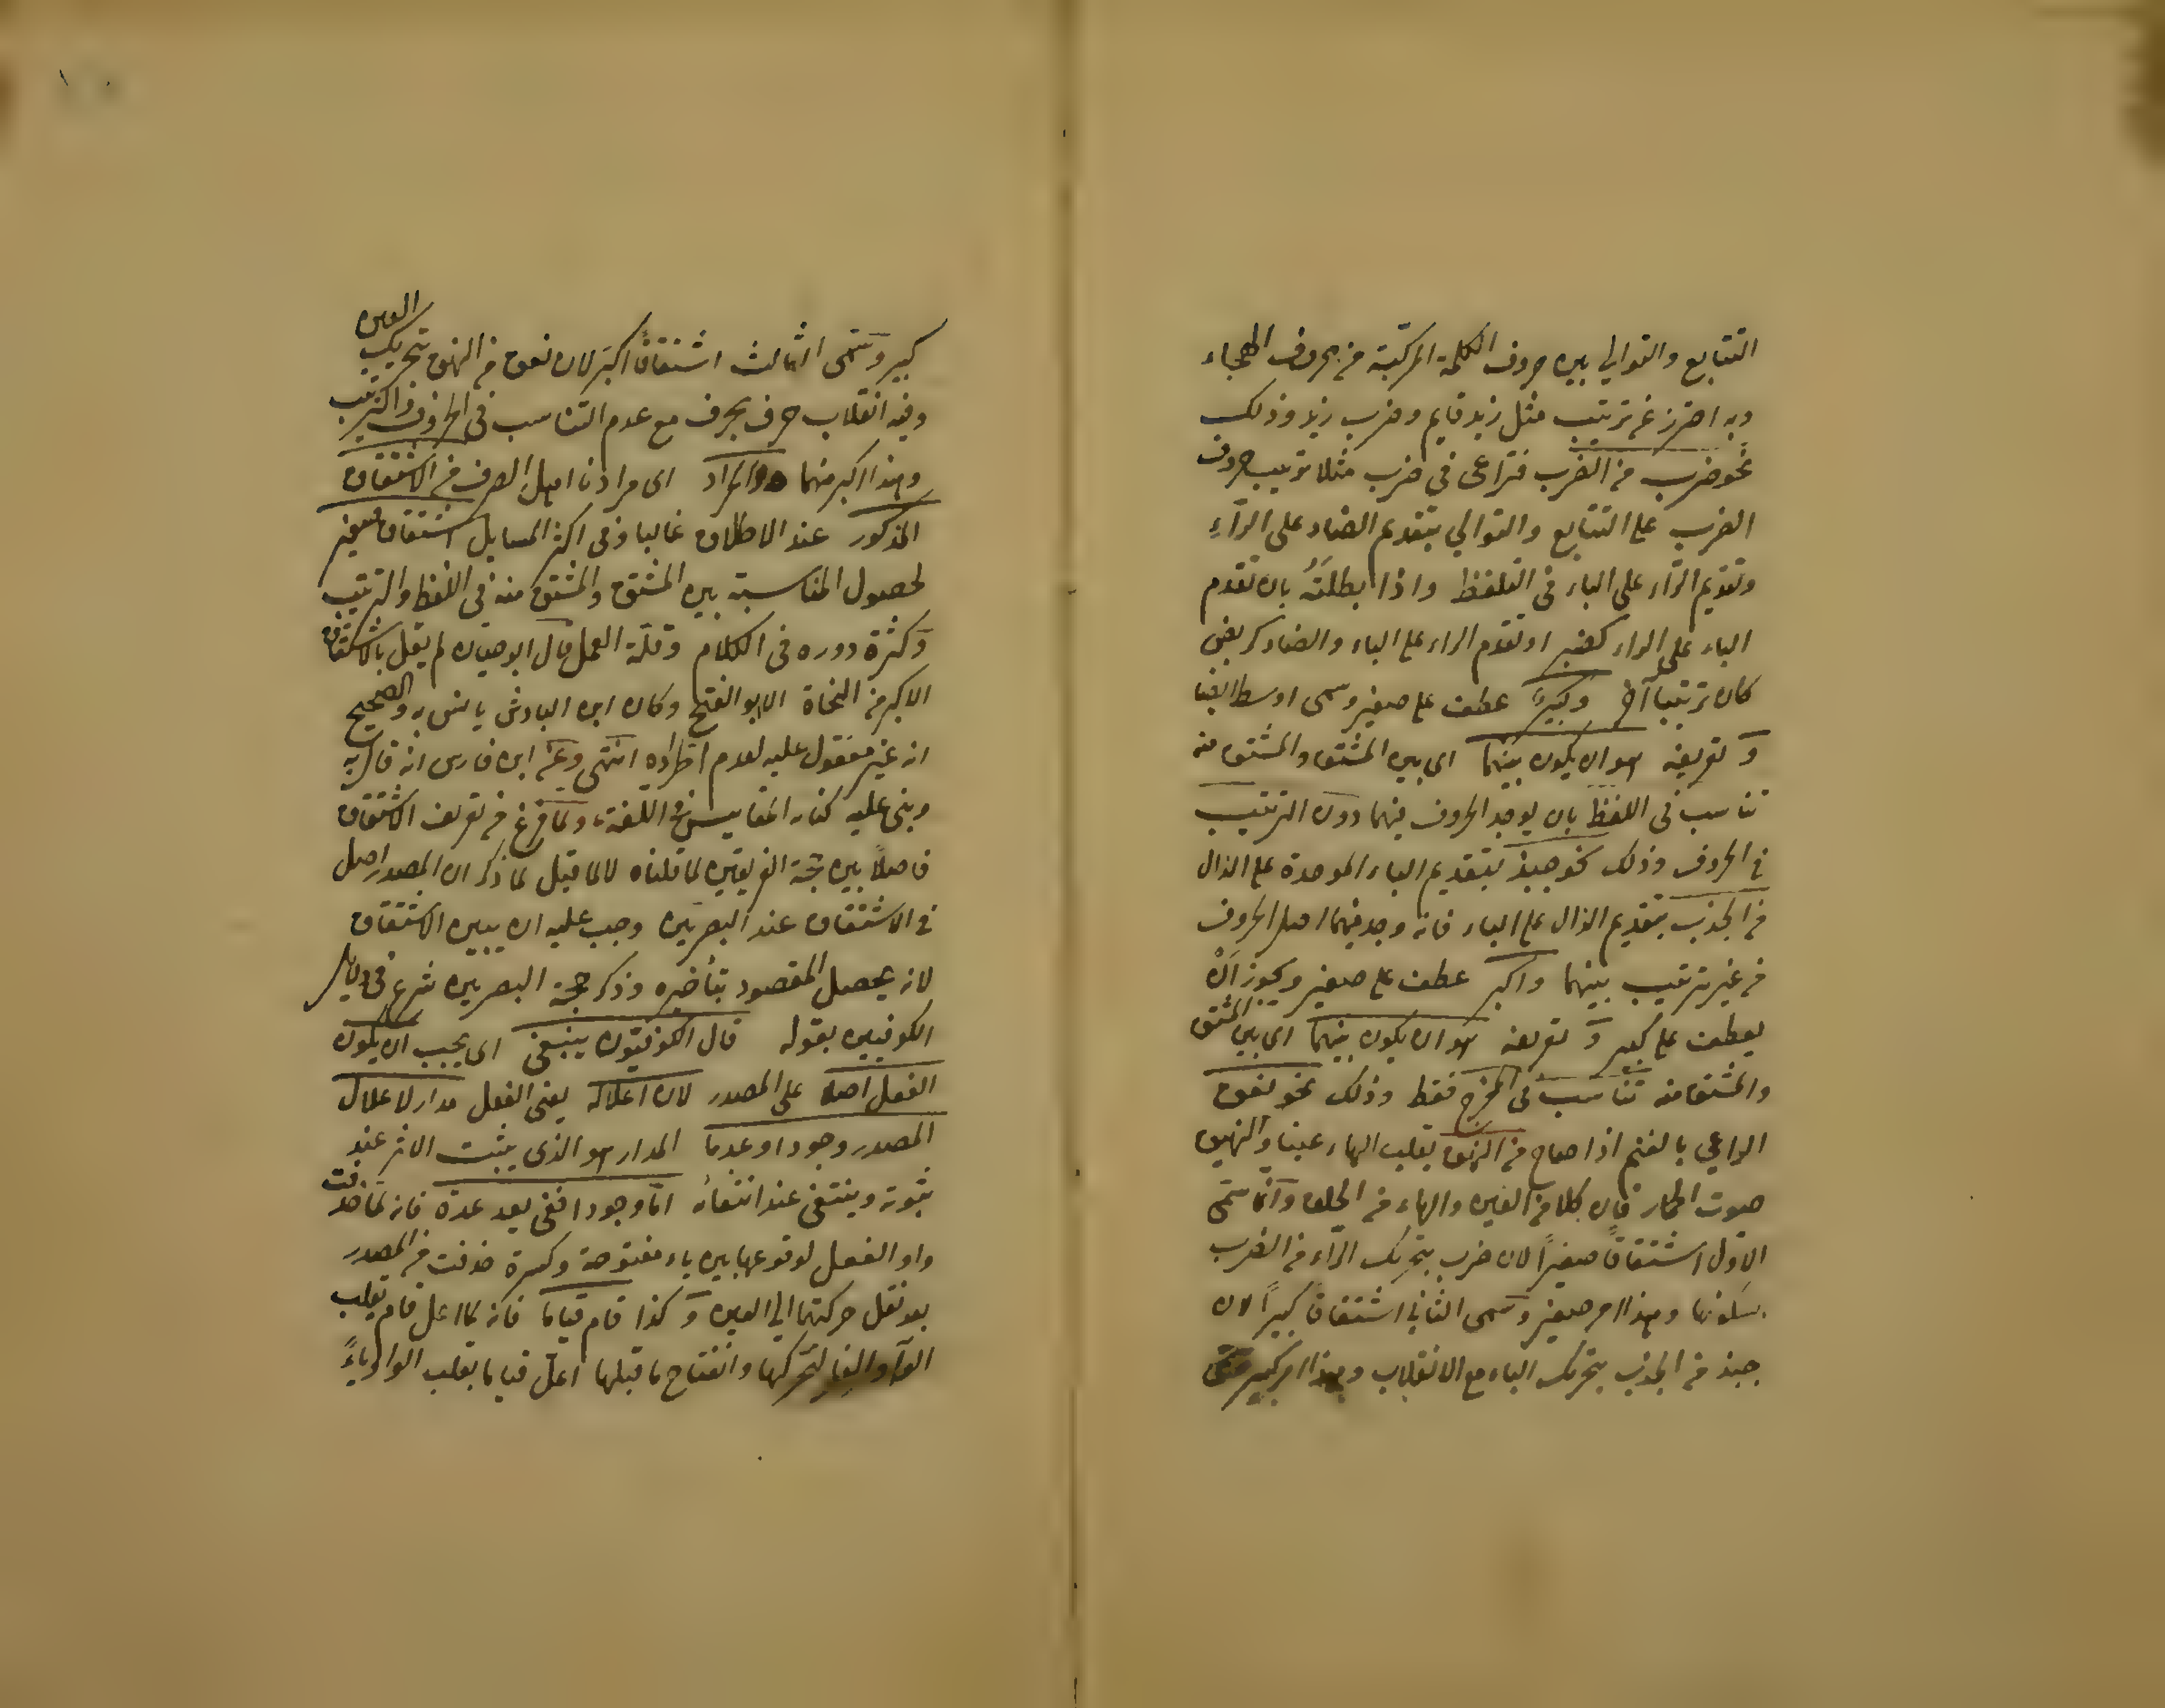 التتابع والتوالي بين حروف الكلمة المركبة من حروف الهجاء
وبه احترز عن ترتيب مثل زيد قايم وضرب زيد وذلك
نحو ضرب من الضرب فتراعى في ضرب مثلا ترتيب حروف
الضرب على التتابع والتوالي بتقديم الضاد على الرآء
وتقديم الرّاء على الباء في التلفظ واذا ابطلتَهُ بان تقدم
الباء على الراء كضبر او تقدم الراء على الباء والضاد كربض
كان ترتيبا آخر وكبيرٌ عطف على صغير وسمى اوسط ايضا
وَ تعريفه هو ان يكون بينهما اى بين المشتق والمشتق منه
تناسب في اللفظ بان يوجد الحروف فيهما دون الترتيب
في الحروف وذلك نحو جبذ بتقديم الباء الموحدة على الذال
من الجذب بتقديم الذال على الباء فانه وجد فيهما اصل الحروف
من غير ترتيب بينهما واكبر عطف على صغير ويجوز اَنْ
يعطف على كبير وَ تعريفه هو ان يكون بينهما اى بين المشتق
والمشتق منه تناسب في المخرج فقط وذلك نحو نعق
الراعي بالغنم اذا صاح من النهق بقلب الهاء عينا والنهيق
صوت الحمار فان كلا من العين والهاء من الحلق وَانّما سمّى
الاوّل اشتقاقًا صغيرًا لان ضرب بتحريك الرّاء من الضرب
بسكونها وهذا امر صغير وسمى الثاني اشتقاقًا كبيرًا لان
جبذ من الجذب بتحريك الباء مع الانقلاب وهذا امر كبير
كبير وسَمّى الثالث اشتقاقًا اكبرَ لان نعق من النهق بتحريك العين
وفيه انقلاب حرف بحرف مع عدم التناسب في الحروف والترتيب
وهذا اكبر منهما والمراد اى مرادنا اهل الصرف من الاشتقاق
المذكور عند الاطلاق غالبا وفى اكثر المسايل اشتقاق صغير
لحصول المناسبة بين المشتق والمشتق منه في اللفظ والترتيب
وَكثرة دوره في الكلام وقلّة العمل قال ابو حيان لم يقل بالاشتقاق
الاكبر من النحاة الا ابو الفتح وكان ابن الباذش يانس به والصحيح
انه غير معقول عليه لعدم اطراده انتهى وعَن ابن فارس انه قال به
وبنى عليه كتابه المقاييس في اللغة، ولما فرغ من تعريف الاشتقاق
فاصلًا بين حجة الفريقين لما قلناه لا لما قيل لما ذكر ان المصدر اصل
في الاشتقاق عند البصريين وجب عليه ان يبين الاشتقاق
لانه يحصل المقصود بتأخيره وذكر حجة البصريين شرع في دلايل
الكوفيين بقوله قال الكوفيّون ينبغي اى يجب ان يكون
الفعل اصلا على المصدر لان اعلاله يعنى الفعل مدار لاعلال
المصدر وجودا وعدما المدار هو الذى يثبت الاثر عند
ثبوته وينتفى عند انتفائه امّا وجودا ففى يعد عدة فانه لمّا حذفت
واو الفعل لوقوعها بين ياء مفتوحة وكسرة حذفت من المصدر
بعد نقل حركتها الى العين وَ كذا قام قياما فانه لما اعل قام بقلب
الوَاو الفا لتحركها وانفتاح ما قبلها اعلّ قياما بقلب الواو ياءً